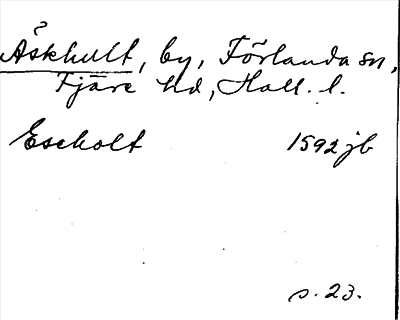 Äskhult, by, Förlanda sn,
Fjäre hd, Hall. l.
Escholt 1592 jb
s. 23.